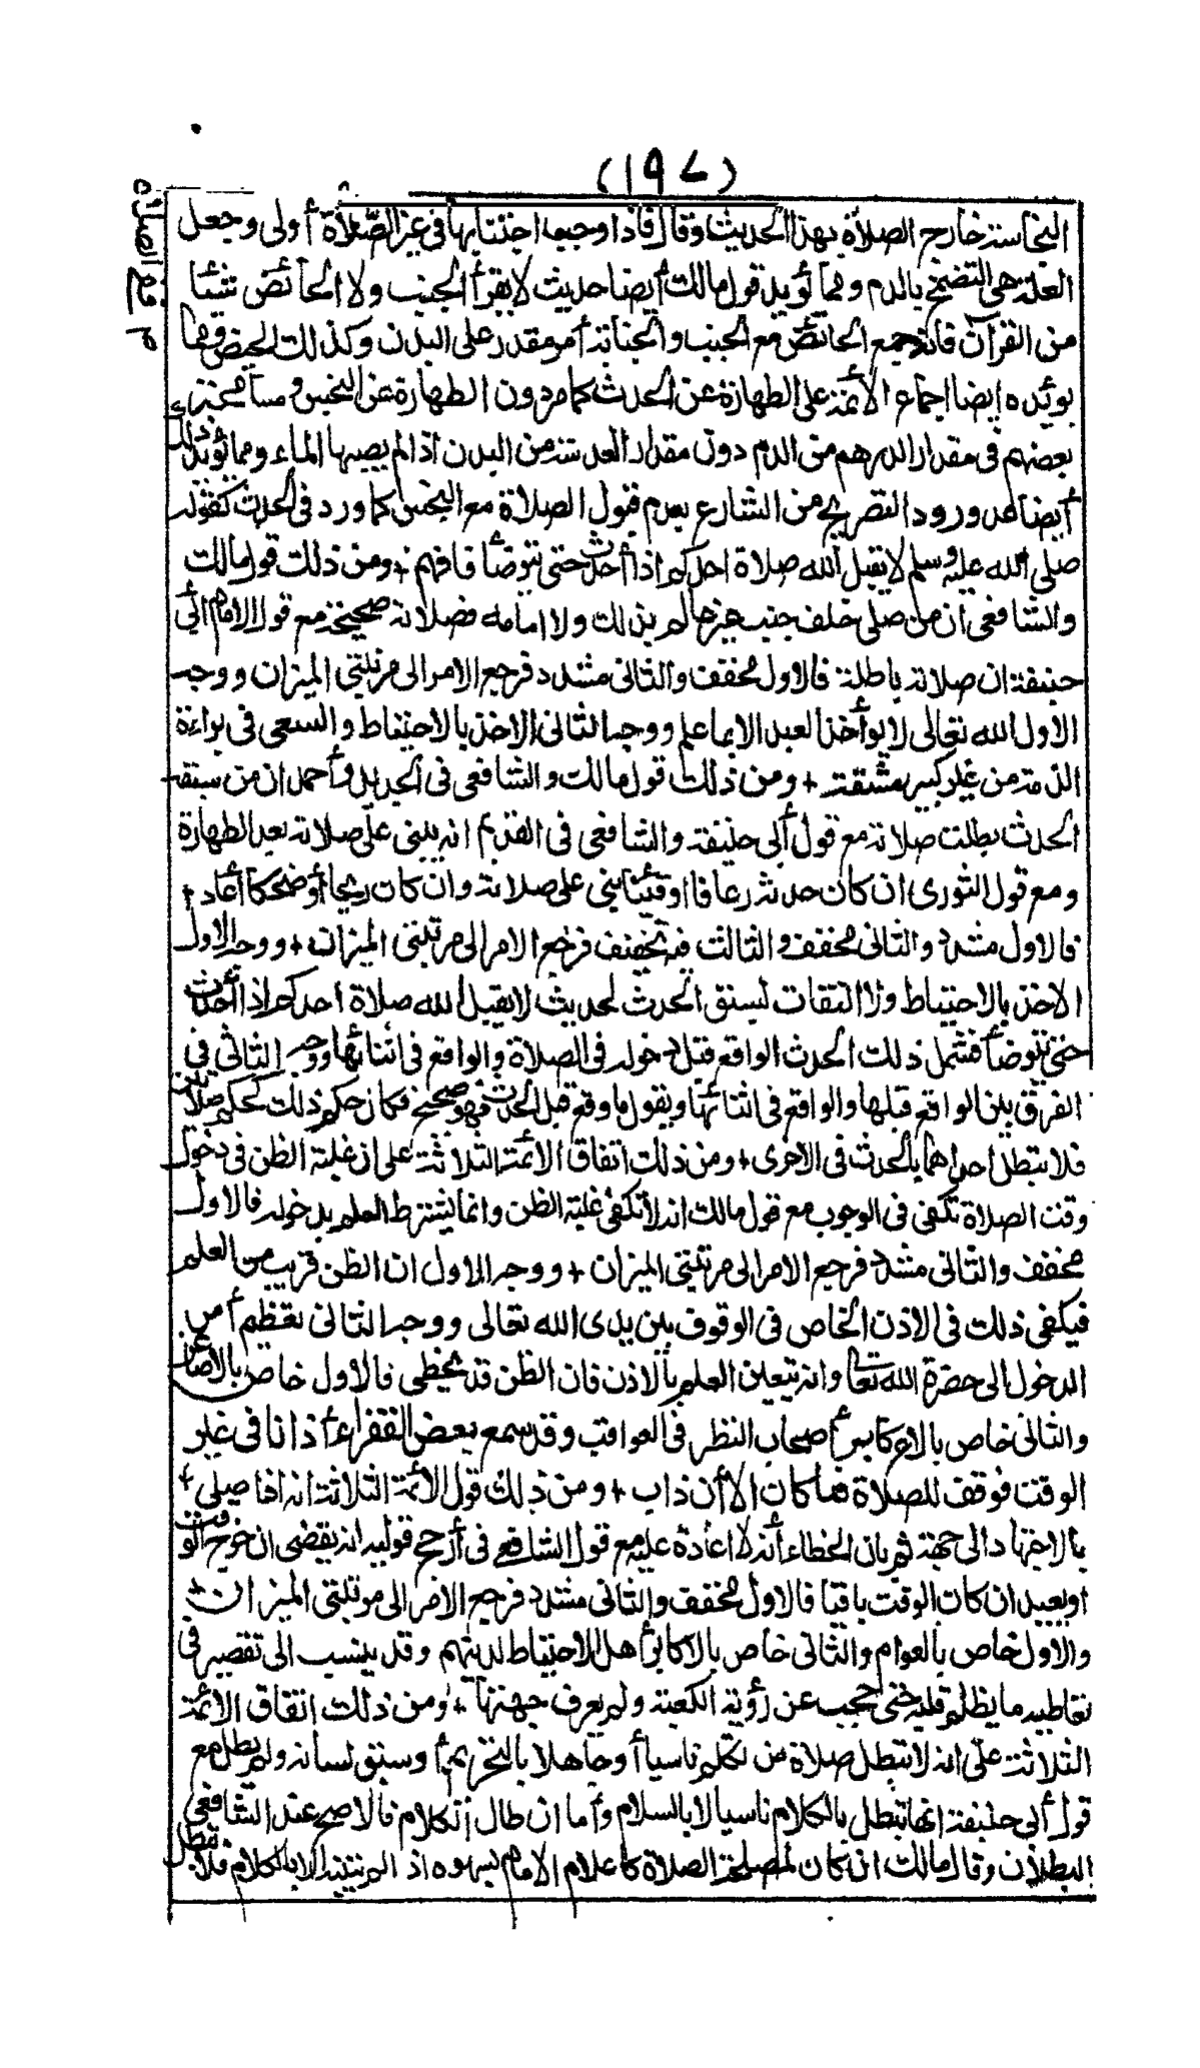 (١٩٧)
النجاسة خارج الصلاة بهذا الحديث وقال فاذا وجب اجتنابها فى غير الصلاة أولى وجعل
العلة هى التضمخ بالدم ومما يؤيد قول مالك أيضا حديث لا يقرأ الجنب ولا الحائض شيئا
من القرآن فانه جمع الحائض مع الجنب والجنابة أمر مقدر على البدن وكذلك الحيض ومما
يؤيده ايضا اجماع الأئمة على الطهارة عن الحدث كما مر دون الطهارة عن النجس ومسامحة
بعضهم فى مقدار الدرهم من الدم دون مقدار العدسة من البدن اذا لم يصبها الماء ومما يؤيد ذلك
أيضا عدم ورود التصريح من الشارع بعدم قبول الصلاة مع النجس كما ورد فى الحدث كقوله
صلى الله عليه وسلم لا يقبل الله صلاة احدكم اذا أحدث حتى يتوضأ فافهم + ومن ذلك قول مالك
والشافعى ان من صلى خلف جنب غير عالم بذلك ولا امامه فصلاته صحيحة مع قول الامام أبى
حنيفة ان صلاته باطلة فالاول مخفف والثانى مشدد فرجع الامر الى مرتبتى الميزان ووجه
الاول الله تعالى لا يؤاخذ العبد الا بما علم ووجه الثانى الاخذ بالاحتياط والسعى فى براءة
الذمة من غير كبير مشقة + ومن ذلك قول مالك والشافعى فى الجديد وأحمد ان من سبقه
الحدث بطلت صلاته مع قول أبى حنيفة والشافعى فى القديم انه يبنى على صلاته بعد الطهارة
ومع قول الثورى ان كان حدثه رعافا اوقيئا يبنى على صلاته وان كان ريحا أو ضحكا أعاد +
فالاول مشدد والثانى مخفف والثالث فيه تخفيف فرجع الامر الى مرتبتى الميزان + ووجه الاول
الاخذ بالاحتياط ولا التفات لسبق الحدث لحديث لا يقبل الله صلاة احدكم اذا أحدث
حتى يتوضأ فشمل ذلك الحدث الواقع قبل دخوله فى الصلاة والواقع فى اثنائها ووجه الثانى فى
الفرق بين الواقع قبلها والواقع فى اثنائها ويقول ما وقع قبل الحدث فهو صحيح فكان حكم ذلك كحكم صلاتين
فلا تبطل احداهما بالحدث فى الاخرى + ومن ذلك اتفاق الأئمة الثلاثة على ان غلبة الظن فى دخول
وقت الصلاة تكفى فى الوجوب مع قول مالك انه لا تكفى غلبة الظن وانما يشترط العلم بدخوله فالاول
مخفف والثانى مشدد فرجع الامر الى مرتبتى الميزان + ووجه الاول ان الظن قريب من العلم
فيكفى ذلك فى الاذن الخاص فى الوقوف بين يدى الله تعالى ووجه الثانى تعظم أمر
الدخول الى حضرة الله تعالى وانه يتعين العلم بالاذن فان الظن قد يخطى فالاول خاص بالاصاغر
والثانى خاص بالاكابر أصحاب النظر فى العواقب وقد سمع بعض الفقراء أذانا فى غير
الوقت فوقف للصلاة فما كان الا أن ذاب + ومن ذلك قول الأئمة الثلاثة انه اذا صلى +
بالاجتهاد الى جهة ثم بان الخطاء أنه لا اعادة عليه مع قول الشافعى فى أرجح قوليه انه يقضى ان خرج الوقت
أو يعيد ان كان الوقت باقيا فالاول مخفف والثانى مشدد فرجع الامر الى مرتبتى الميزان +
والاول خاص بالعوام والثانى خاص بالاكابر أهل الاحتياط لدينهم وقد ينسب الى تقصير فى
تعاطيه ما يظلم قلبه حتى حجب عن رؤية الكعبة ولم يعرف جهتها + ومن ذلك اتفاق الأئمة
الثلاثة على انه لا تبطل صلاة من تكلم ناسيا أو جاهلا بالتحريم أو سبق لسانه ولم يطل مع
قول أبى حنيفة انها تبطل بالكلام ناسيا لا بالسلام وأما ان طال الكلام فالاصح عند الشافعى
البطلان وقال مالك ان كان لمصلحة الصلاة كاعلام الامام بسهوه اذا لم يتنبه الا بالكلام فلا تبطل